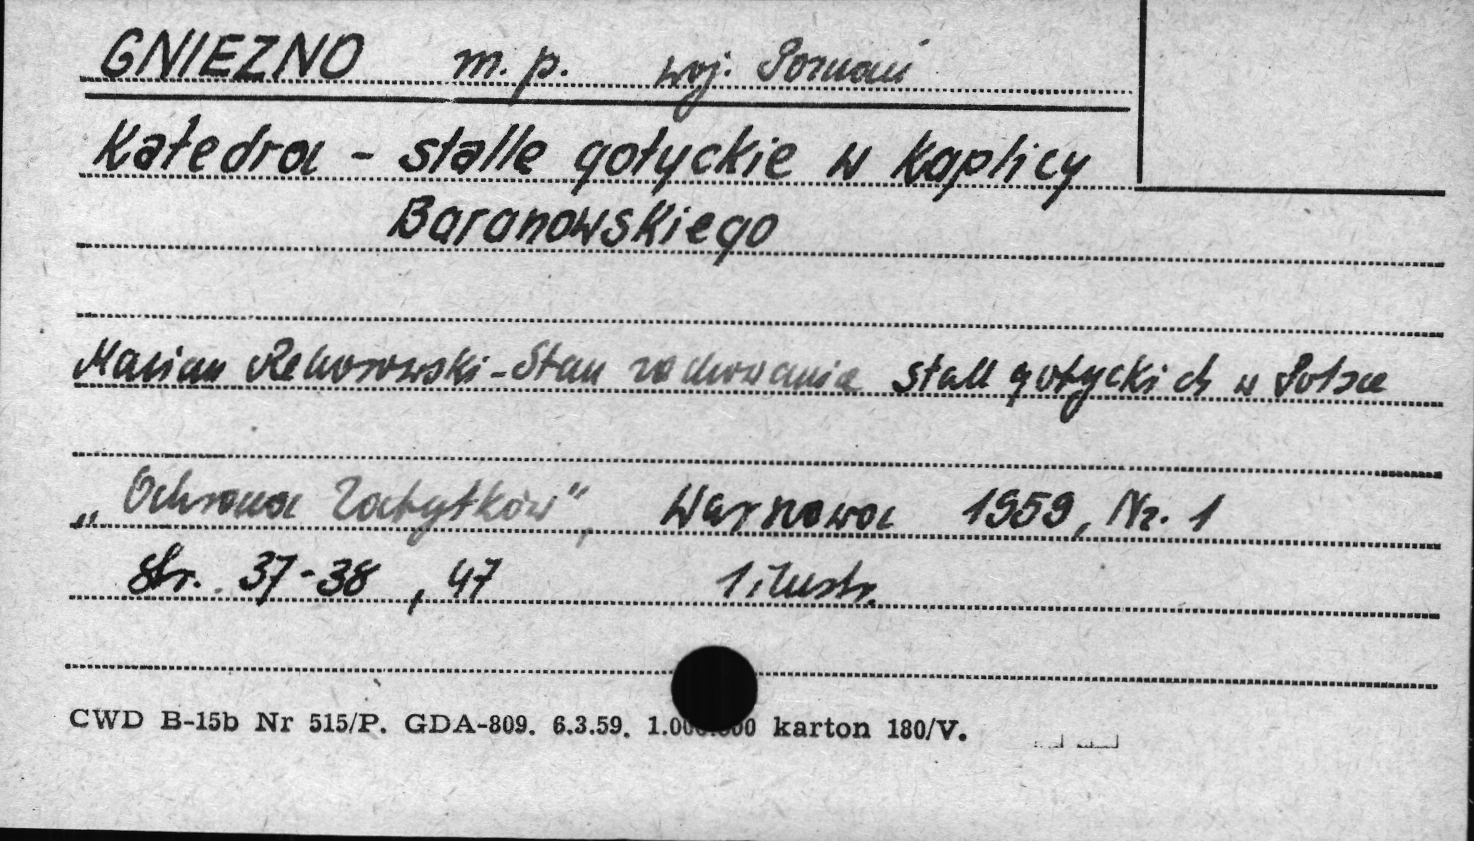 GNIEZNO m. p. woj. Poznań
Katedra - stalle gotyckie w Kaplicy
Baranowskiego
Marian Rehorowski - Stan zachowania stall gotyckich w Polsce
„Ochrona Zabytków", Warszawa 1959, Nr. 1
Str. 37-38, 47 1 ilustr.
CWD B-15b Nr 515/P. GDA-809. 6.3.59. 1.000.000 karton 180/V.